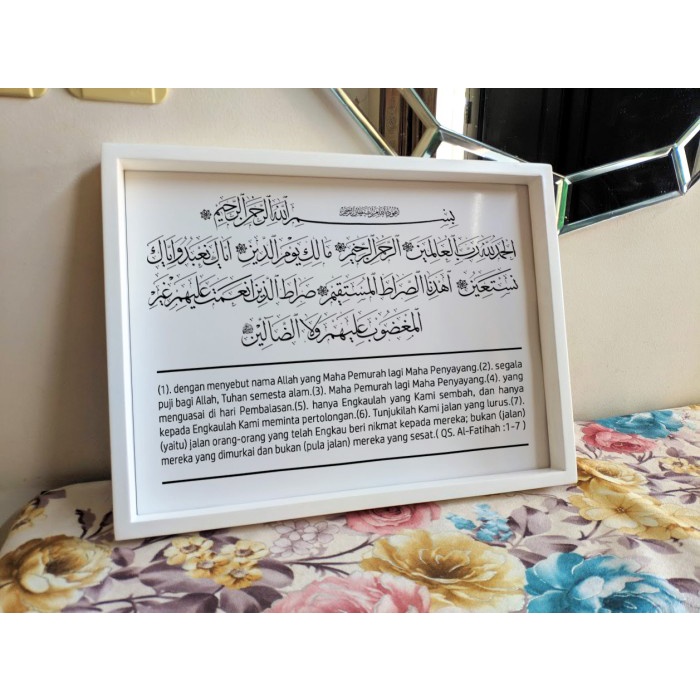 أعوذ بالله من الشيطان الرجيم
بسم الله الرحمن الرحيم
الحمد لله رب العالمين الرحمن الرحيم مالك يوم الدين اياك نعبد واياك
نستعين اهدنا الصراط المستقيم صراط الذين انعمت عليهم غير
المغضوب عليهم ولا الضالين
(1). dengan menyebut nama Allah yang Maha Pemurah lagi Maha Penyayang.(2). segala
puji bagi Allah, Tuhan semesta alam.(3). Maha Pemurah lagi Maha Penyayang.(4). yang
menguasai di hari Pembalasan.(5). hanya Engkaulah yang Kami sembah, dan hanya
kepada Engkaulah Kami meminta pertolongan.(6). Tunjukilah Kami jalan yang lurus.(7).
(yaitu) jalan orang-orang yang telah Engkau beri nikmat kepada mereka; bukan (jalan)
mereka yang dimurkai dan bukan (pula jalan) mereka yang sesat.( QS. Al-Fatihah :1-7 )